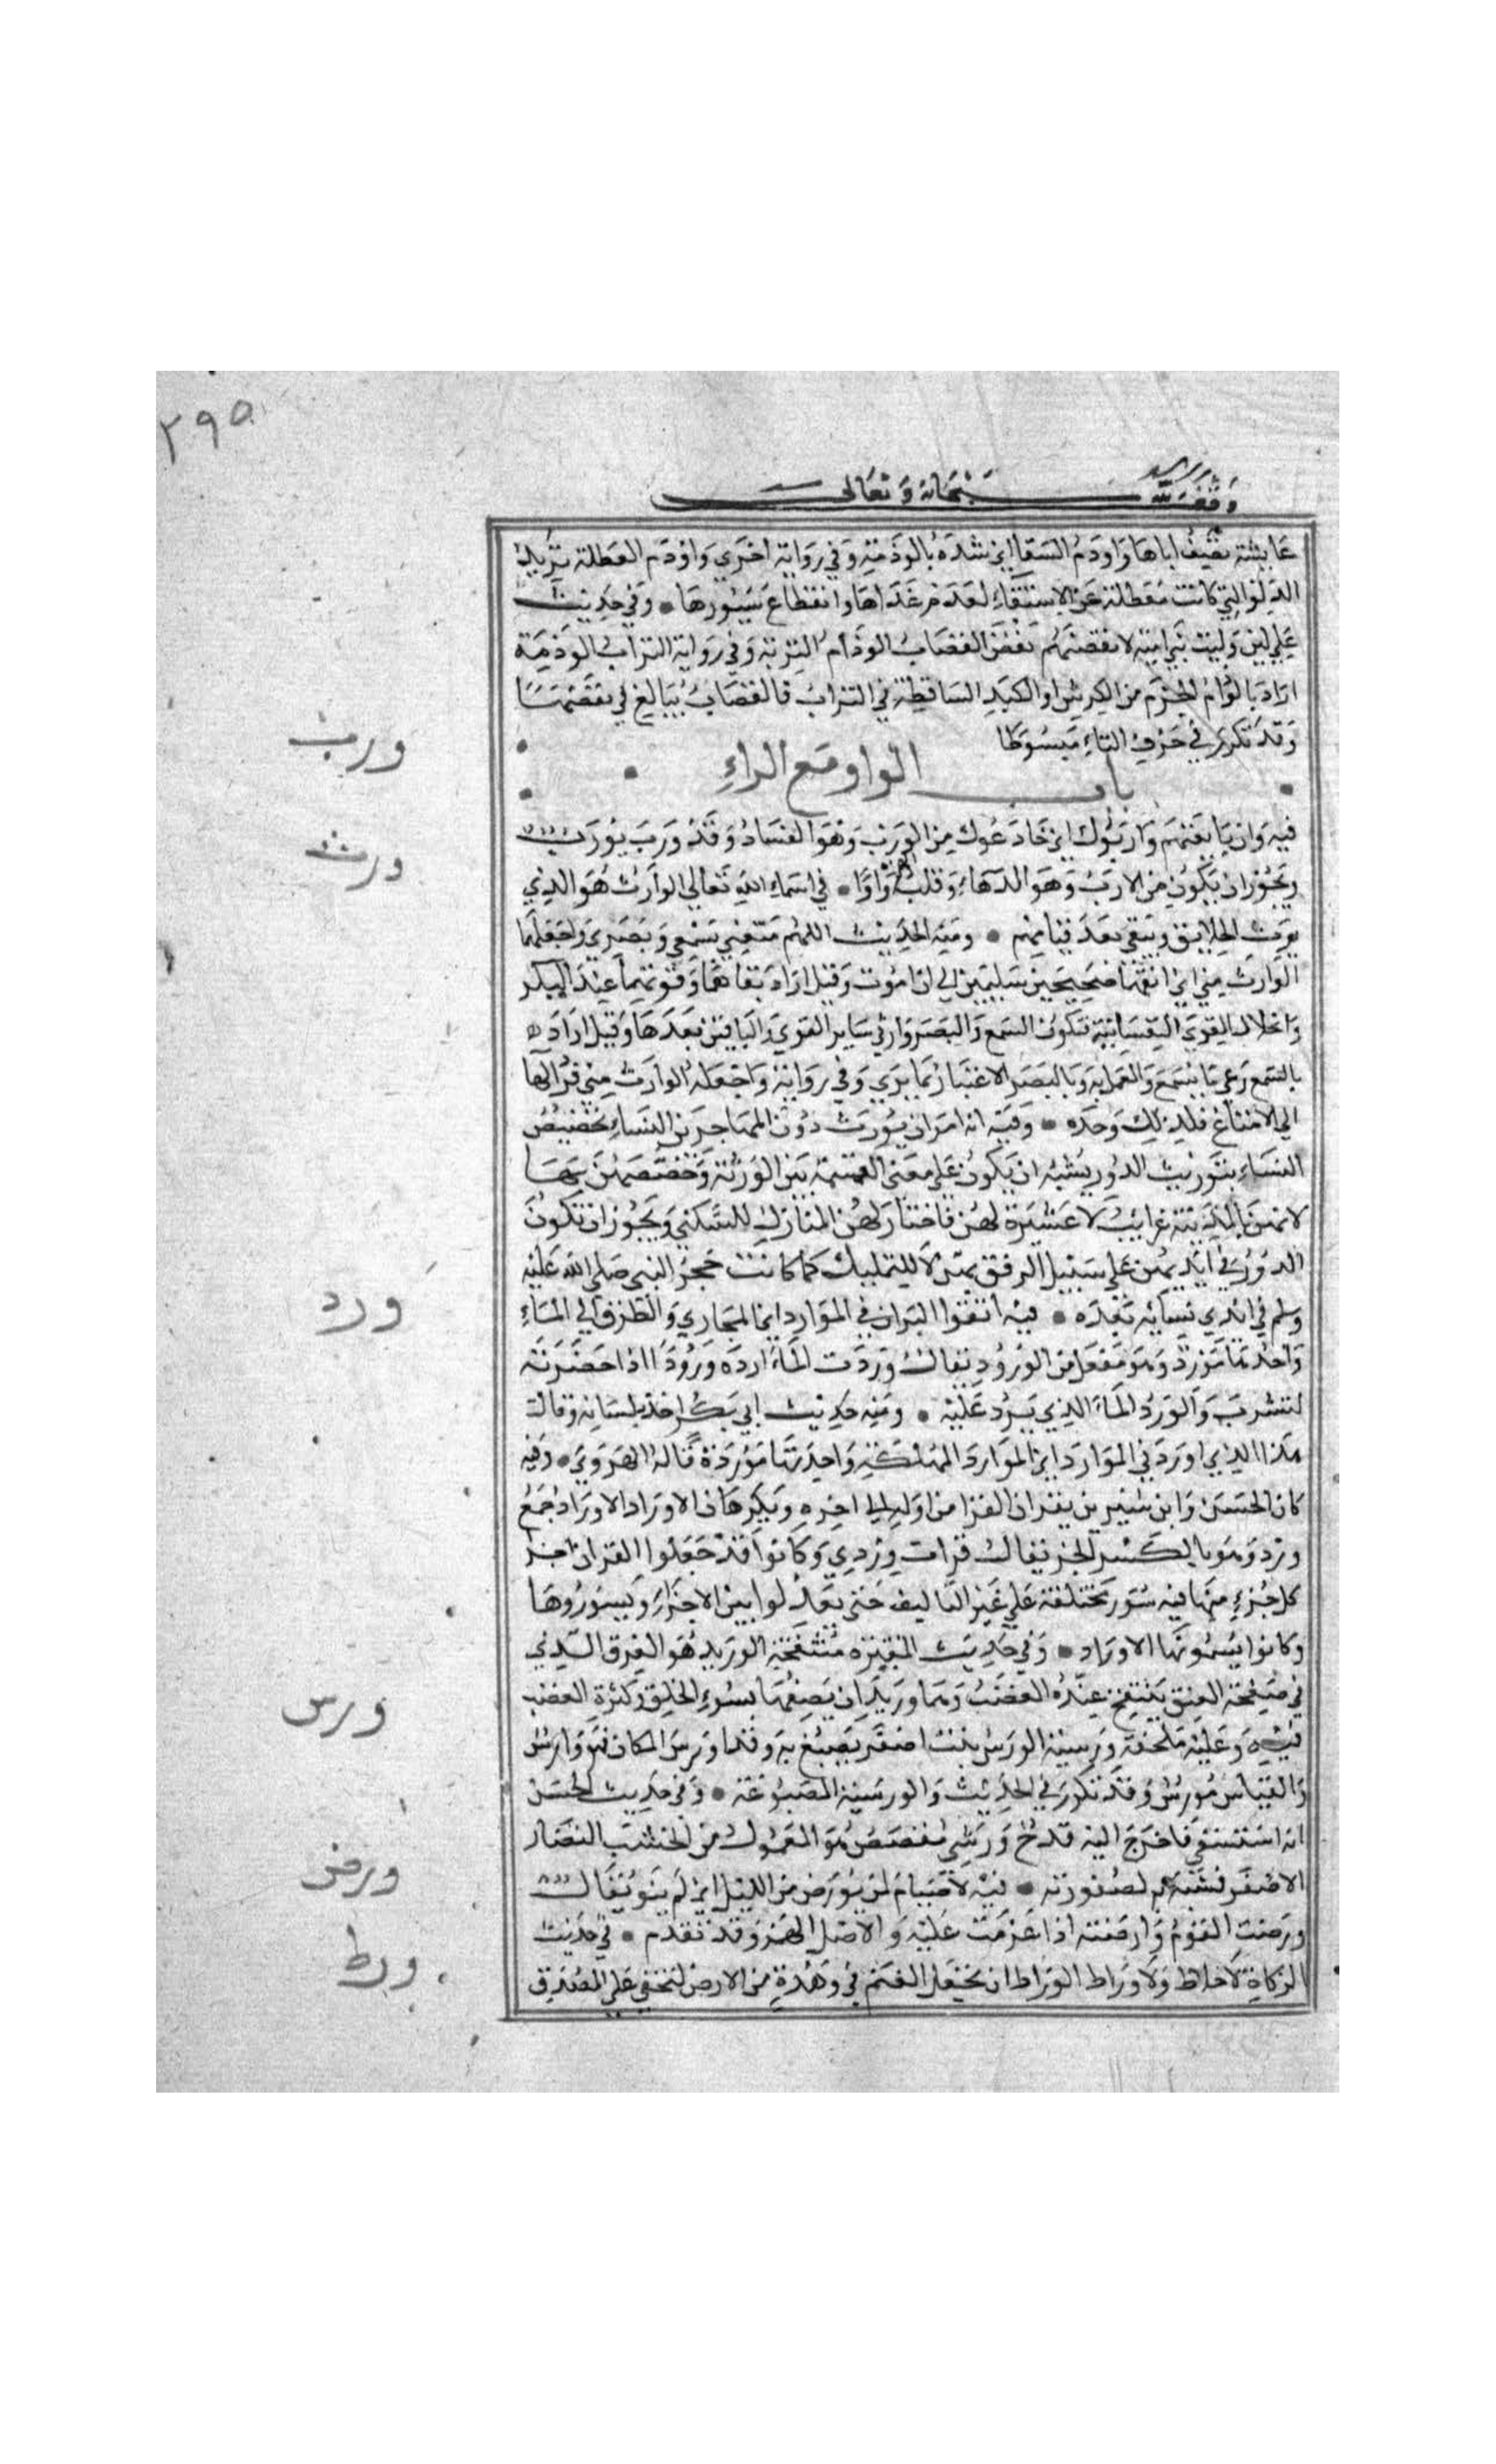 ٣٩٥
وقف لله سبحانه وتعالى
عايشة تصف اباها واوذم السقا اي شده بالوذمة وفي رواية اخري واوذم العطلة تريد
الدلو التي كانت معطلة عن الاستقاء لعدم عراها وانقطاع سيورها • وفي حديث
علي لين وليت بني امية لانفضنهم نفض القصاب الوذام التربة وفي رواية التراب الوذمة
اراد بالوذام الحزم من الكرش او الكبد الساقطة في التراب فالقصاب يبالغ في نفضها
وقد تكرر في حرف التاء مبسوطا
باب الواو مع الراء
ورب
فيه وان بايعتهم واربوك اي خادعوك من الورب وهو الفساد وقد ورب يورب
ورث
ويجوز ان يكون من الارب وهو الدهاء وقلب الهمزة واوا • في اسماء الله تعالي الوارث هو الذي
يرث الخلايق ويبقي بعد فنايهم • ومنه الحديث اللهم متعني بسمعي وبصري واجعلهما
الوارث مني اي ابقهما صحيحين سليمين الي ان اموت وقيل اراد بقاهما وقوتهما عند الكبر
وانحلال القوي النفسانية فتكون السمع والبصر وارثي ساير القوي والباقين بعدها وقيل اراد
بالسمع وعي ما يسمع والعمل به وبالبصر الاعتبار بما يري وفي رواية واجعله الوارث مني فرد الها
الي الامتاع فلذلك وحده • وفيه انه امر ان يورث دور المهاجرين النساء تخصيص
النساء بتوريث الدور يشبه ان يكون علي معني القسمة بين الورثة وخصصهن بها
لانهن بالمدينة غرايب لا عشيرة لهن فاختار لهن المنازل للسكني ويجوز ان تكون
الدور في ايديهن علي سبيل الرفق بهن لا للتمليك كما كانت حجر النبي صلي الله عليه
ورد
وسلم في ايدي نسايه بعده • فيه اتقوا البراز في الموارد اي المجاري والطرق الي الماء
واحدها مورد وهو مفعل من الورود يقال وردت الماء ارده ورودا اذا حضرته
لتشرب والورد الماء الذي يرد عليه • ومنه حديث ابي بكر اخذ بلسانه وقال
هذا الذي اوردني الموارد اي الموارد المهلكة واحدتها موردة قاله الهروي • وفيه
كان الحسن وابن سيرين يقران القران من اوله الي اخره ويكرهان الاوراد الاوراد جمع
ورد وهو بالكسر الجز يقال قرات وردي وكانوا قد جعلوا القران اجزا
كل جزء منها فيه سور مختلفة علي غير التاليف حتي يعدلوا بين الاجزاء ويسوروها
وكانوا يسمونها الاوراد • وفي حديث المغيرة منتفخة الوريد هو العرق الذي
في صفحة العنق ينتفخ عند الغضب وهما وريدان يصفها بسوء الخلق وكثرة الغضب
ورس
فيه وعليه ملحفة ورسية الورس نبت اصفر يصبغ به وقد اورس المكان فهو وارس
والقياس مورس وقد تكرر في الحديث والورسية المصبوغة • وفي حديث الحسن
انه استسقي فاخرج اليه قدح ورسي مفضض هو المعمول من الخشب النضار
ورض
الاصفر فشبه به لصفرته • فيه لا صيام لمن لم يورض من الليل اي لم ينو يقال
ورضت الصوم وارضته اذا عزمت عليه والاصل الهمز وقد تقدم • في حديث
ورط
الزكاة لا خلاط ولا وراط الوراط ان يجعل الغنم في وهدة من الارض لتخفي علي المصدق